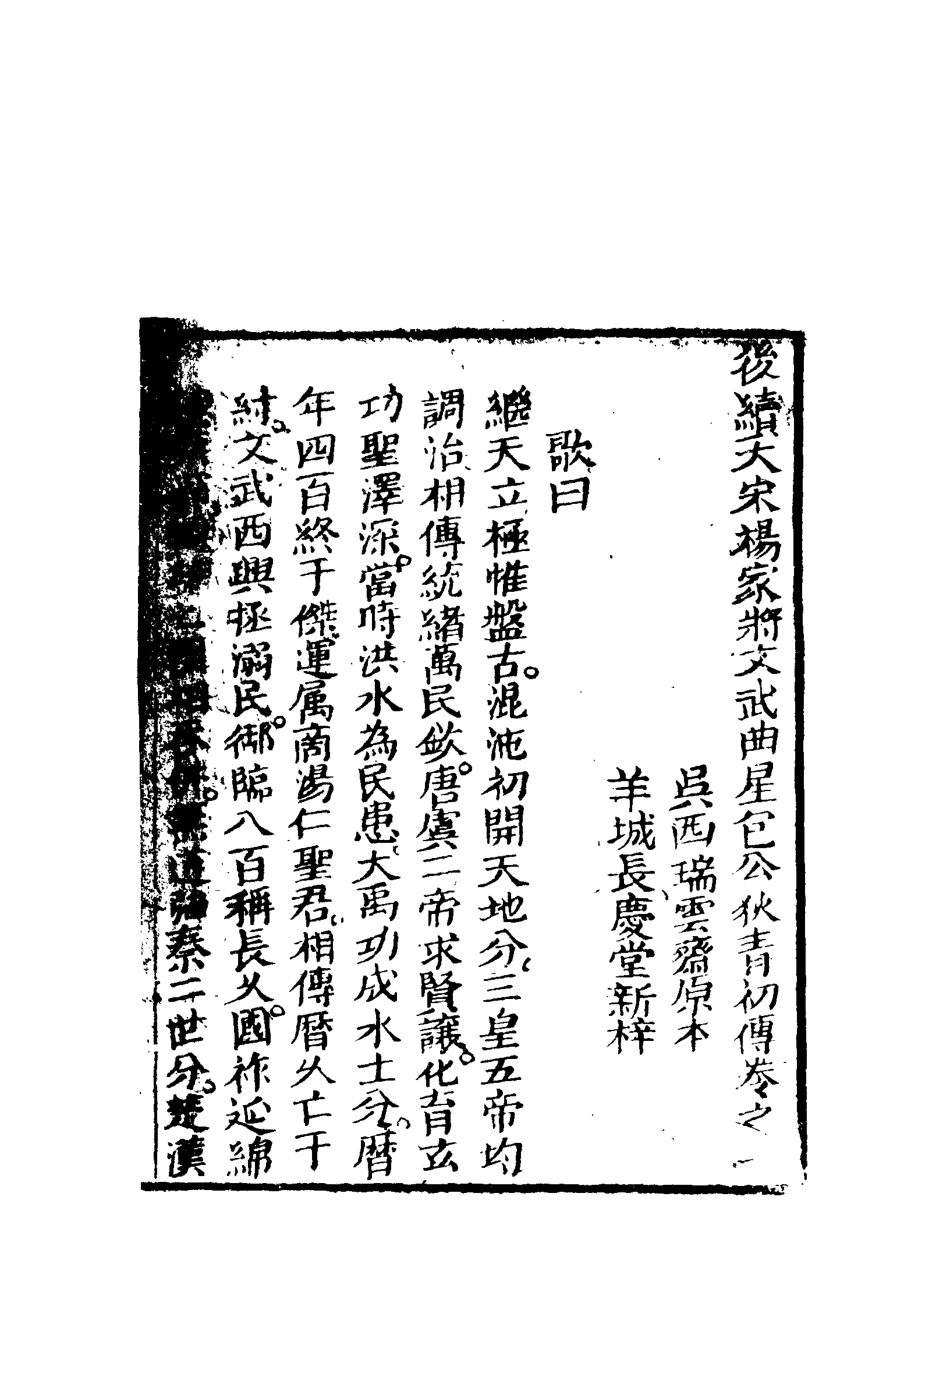 後續大宋楊家將文武曲星包公狄青初傳卷之一
吳西瑞雲齋原本
羊城長慶堂新梓
歌曰
繼天立極惟盤古。混沌初開天地分。三皇五帝均
調治相傳統緒萬民欽。唐虞二帝求賢讓。化育玄
功聖澤深。當時洪水為民患。大禹功成水土分。曆
年四百終于傑運属商湯仁聖君。相傳曆久亡于
紂。文武西興拯溺民。御臨八百稱長久。國祚延綿
道強秦二世分。楚漢